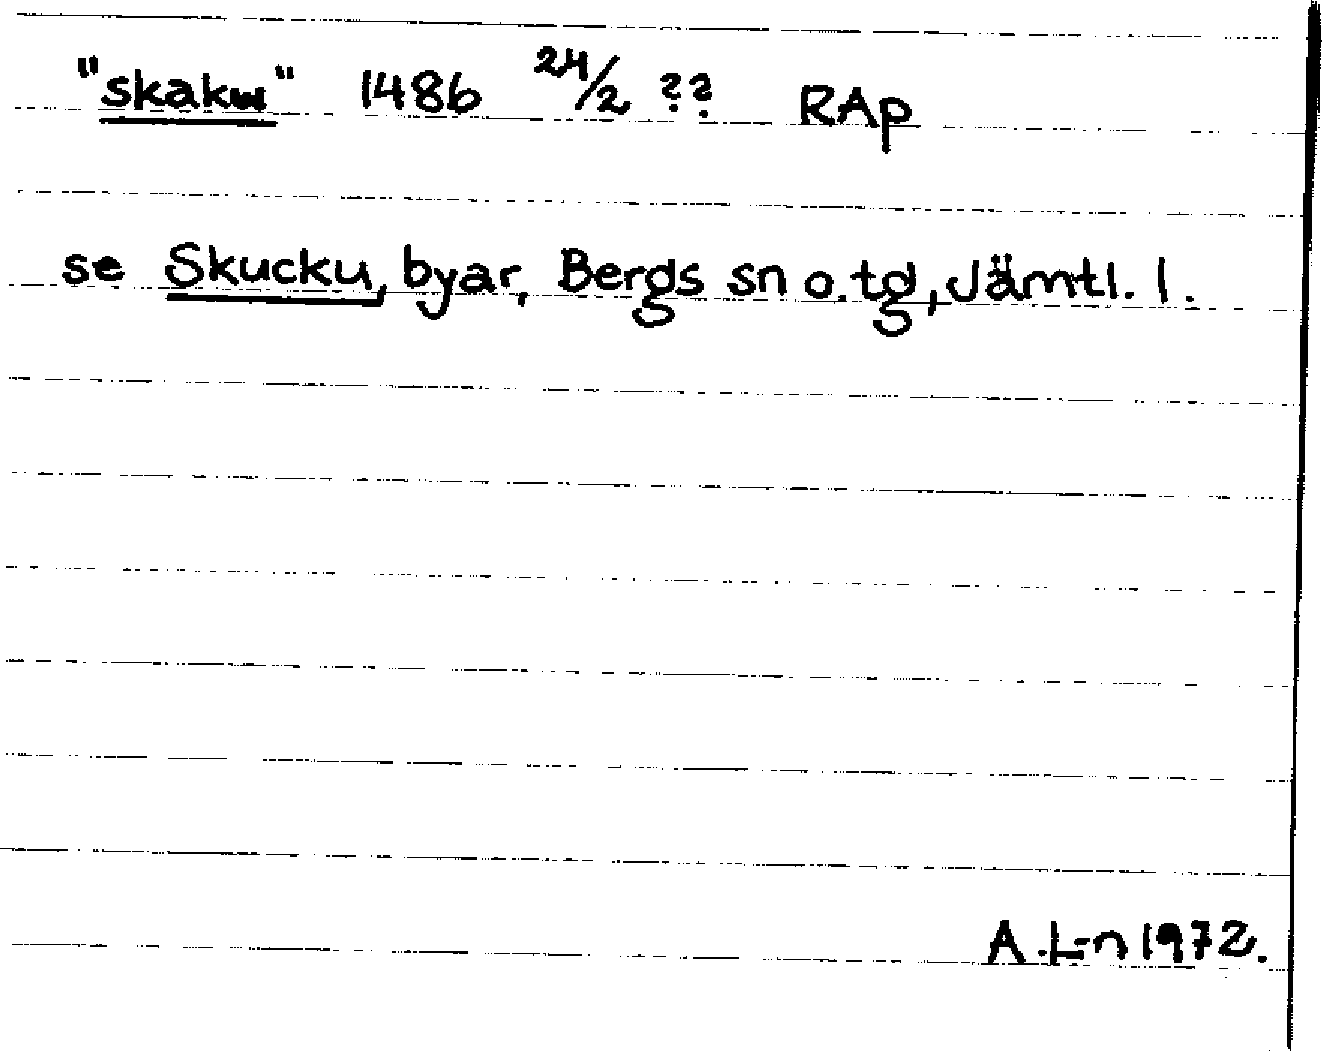 "skakw" 1486 24/2 ?? RAp
se Skucku, byar, Bergs sn o. tg, Jämtl. l.
A. L-n 1972.